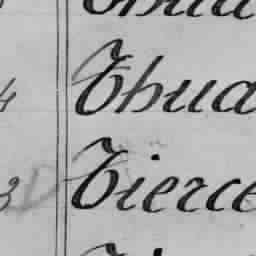 4 Thua
3 Tierce